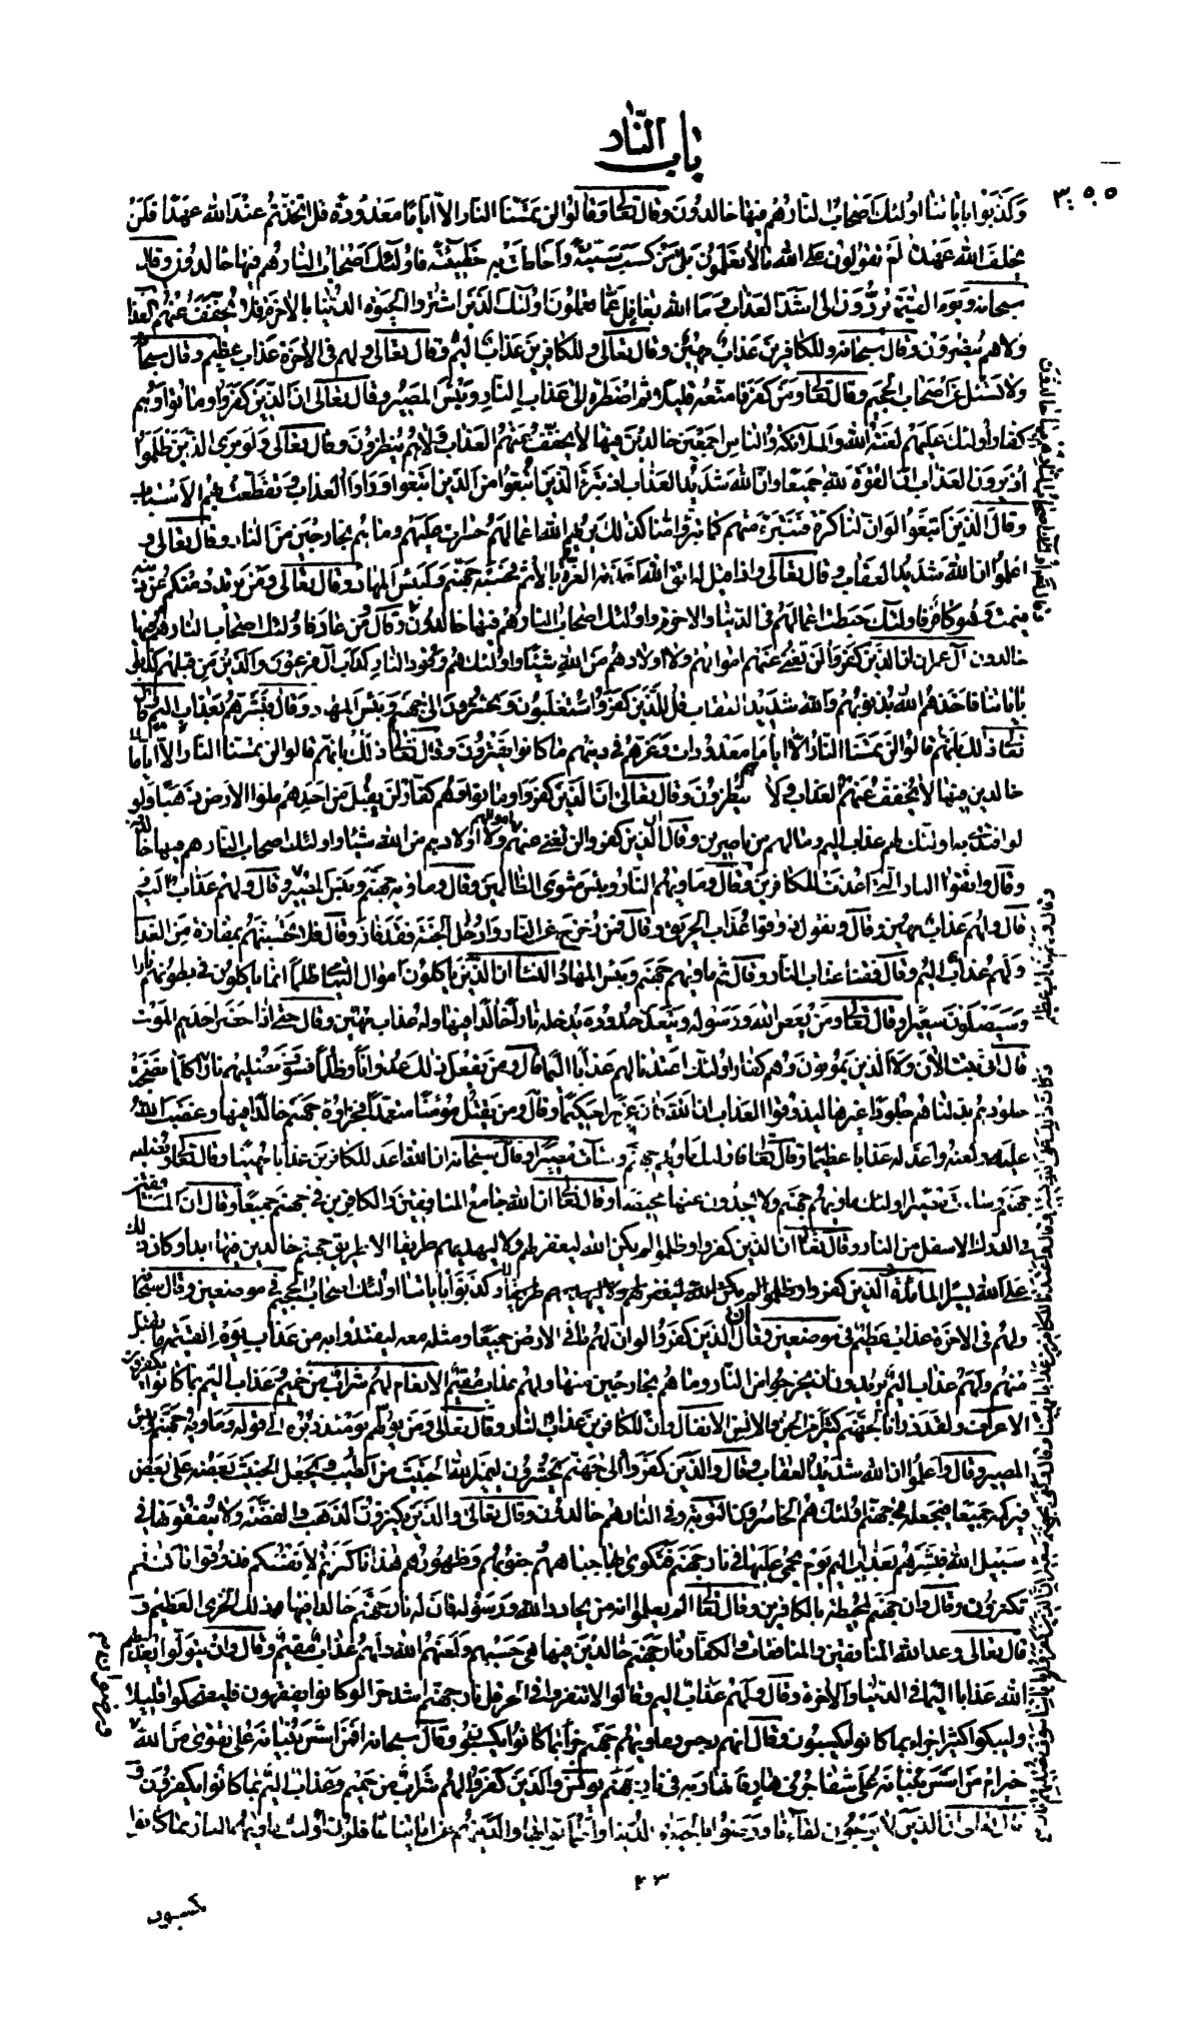 باب النار
٣٠٥٥
وكذبوا باياتنا اولئك اصحاب النار هم فيها خالدون وقال تعالى وقالوا لن تمسنا النار الا اياما معدودة قل اتخذتم عند الله عهدا فلن
يخلف الله عهده ام تقولون على الله ما لا تعلمون بلى من كسب سيئة واحاطت به خطيئته فاولئك اصحاب النار هم فيها خالدون وقال
سبحانه ويوم القيمة يردون الى اشد العذاب وما الله بغافل عما تعملون اولئك الذين اشتروا الحيوة الدنيا بالاخرة فلا يخفف عنهم العذاب
ولا هم ينصرون وقال سبحانه وللكافرين عذاب مهين وقال تعالى وللكافرين عذاب اليم وقال تعالى ولهم فى الاخرة عذاب عظيم وقال سبحانه
ولا تسئل عن اصحاب الجحيم وقال تعالى ومن كفر فامتعه قليلا ثم اضطره الى عذاب النار وبئس المصير وقال تعالى ان الذين كفروا وماتوا وهم
كفار اولئك عليهم لعنة الله والملائكة والناس اجمعين خالدين فيها لا يخفف عنهم العذاب ولا هم ينظرون وقال تعالى ولو يرى الذين ظلموا
اذ يرون العذاب ان القوة لله جميعا وان الله شديد العذاب اذ تبرء الذين اتبعوا من الذين اتبعوا وراوا العذاب وتقطعت بهم الاسباب
وقال الذين اتبعوا لو ان لنا كرة فنتبرء منهم كما تبرؤا منا كذلك يريهم الله اعمالهم حسرات عليهم وما هم بخارجين من النار وقال تعالى و
اعلموا ان الله شديد العقاب وقال تعالى واذا قيل له اتق الله اخذته العزة بالاثم فحسبه جهنم ولبئس المهاد وقال تعالى ومن يرتدد منكم عن دينه
فيمت وهو كافر فاولئك حبطت اعمالهم فى الدنيا والاخرة واولئك اصحاب النار هم فيها خالدون وقال ومن عاد فاولئك اصحاب النار هم فيها
خالدون آل عمران ان الذين كفروا لن تغنى عنهم اموالهم ولا اولادهم من الله شيئا واولئك هم وقود النار كداب آل فرعون والذين من قبلهم كذبوا
باياتنا فاخذهم الله بذنوبهم والله شديد العقاب قل للذين كفروا ستغلبون وتحشرون الى جهنم وبئس المهاد وقال فبشرهم بعذاب اليم
خالدين فيها لا يخفف عنهم العذاب ولا هم ينظرون وقال تعالى ان الذين كفروا وماتوا وهم كفار فلن يقبل من احدهم ملؤا الارض ذهبا ولو
لو افتدى به اولئك لهم عذاب اليم وما لهم من ناصرين وقال ان الذين كفروا لن تغنى عنهم اموالهم ولا اولادهم من الله شيئا واولئك اصحاب النار هم فيها خالدون
وقال واتقوا النار التى اعدت للكافرين وقال وماويهم النار وبئس مثوى الظالمين وقال وماويه جهنم وبئس المصير وقال ولهم عذاب اليم
قال ولهم عذاب مهين وقال ونقول ذوقوا عذاب الحريق وقال فمن زحزح عن النار وادخل الجنة فقد فاز وقال فلا تحسبنهم بمفازة من العذاب
ولهم عذاب اليم وقال فقنا عذاب النار وقال ثم ماويهم جهنم وبئس المهاد النساء ان الذين ياكلون اموال اليتامى ظلما انما ياكلون فى بطونهم نارا
وسيصلون سعيرا وقال تعالى ومن يعص الله ورسوله ويتعد حدوده يدخله نارا خالدا فيها وله عذاب مهين وقال حتى اذا حضر احدهم الموت
قال انى تبت الان ولا الذين يموتون وهم كفار اولئك اعتدنا لهم عذابا اليما وقال ومن يفعل ذلك عدوانا وظلما فسوف نصليه نارا كلما نضجت
جلودهم بدلناهم جلودا غيرها ليذوقوا العذاب ان الله كان عزيزا حكيما وقال ومن يقتل مؤمنا متعمدا فجزاؤه جهنم خالدا فيها وغضب الله
عليه ولعنه واعد له عذابا عظيما وقال تعالى فاولئك ماويهم جهنم وساءت مصيرا وقال سبحانه ان الله اعد للكافرين عذابا مهينا وقال تعالى ونصليه
جهنم وساءت مصيرا اولئك ماويهم جهنم ولا يجدون عنها محيصا وقال تعالى ان الله جامع المنافقين والكافرين فى جهنم جميعا وقال ان المنافقين
فى الدرك الاسفل من النار وقال تعالى ان الذين كفروا وظلموا لم يكن الله ليغفر لهم ولا ليهديهم طريقا الا طريق جهنم خالدين فيها ابدا وكان ذلك
على الله يسيرا المائدة
ولهم فى الاخرة عذاب عظيم فى موضعين وقال ان الذين كفروا لو ان لهم ما فى الارض جميعا ومثله معه ليفتدوا به من عذاب يوم القيمة ما تقبل
منهم ولهم عذاب اليم يريدون ان يخرجوا من النار وما هم بخارجين منها ولهم عذاب مقيم الانعام لهم شراب من حميم وعذاب اليم بما كانوا يكفرون
الاعراف ولقد ذرانا لجهنم كثيرا من الجن والانس الانفال وان للكافرين عذاب النار وقال تعالى ومن يولهم يومئذ دبره الى قوله وماويه جهنم وبئس
المصير وقال واعلموا ان الله شديد العقاب وقال والذين كفروا الى جهنم يحشرون ليميز الله الخبيث من الطيب ويجعل الخبيث بعضه على بعض
فيركمه جميعا فيجعله فى جهنم اولئك هم الخاسرون التوبة وفى النار هم خالدون وقال تعالى والذين يكنزون الذهب والفضة ولا ينفقونها فى
سبيل الله فبشرهم بعذاب اليم يوم يحمى عليها فى نار جهنم فتكوى بها جباههم وجنوبهم وظهورهم هذا ما كنزتم لانفسكم فذوقوا ما كنتم
تكنزون وقال وان جهنم لمحيطة بالكافرين وقال تعالى الم يعلموا انه من يحادد الله ورسوله فان له نار جهنم خالدا فيها ذلك الخزى العظيم و
قال تعالى وعد الله المنافقين والمنافقات والكفار نار جهنم خالدين فيها هى حسبهم ولعنهم الله ولهم عذاب مقيم وقال وان يتولوا يعذبهم
الله عذابا اليما فى الدنيا والاخرة وقال ولهم عذاب اليم وقالوا لا تنفروا فى الحر قل نار جهنم اشد حرا لو كانوا يفقهون فليضحكوا قليلا
وليبكوا كثيرا جزاء بما كانوا يكسبون وقال انهم رجس وماويهم جهنم جزاء بما كانوا يكسبون وقال سبحانه افمن اسس بنيانه على تقوى من الله
خير ام من اسس بنيانه على شفا جرف هار فانهار به فى نار جهنم يونس والذين كفروا لهم شراب من حميم وعذاب اليم بما كانوا يكفرون و
قال تعالى ان الذين لا يرجون لقاءنا ورضوا بالحيوة الدنيا واطمانوا بها والذين هم عن اياتنا غافلون اولئك ماويهم النار بما كانوا
٢٣
يكسبون